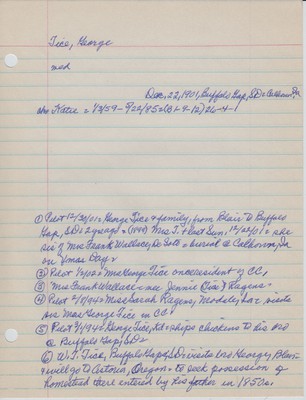 Tice, George
med
Dec. 22, 1901, Buffalo Gap, SD = Calhoun,
Katie = 1/3/59 - 9/22/85 = (31 + 9-12) 26-4-1
① Pilot 12/30/01 = George Tice & family, from Blair to Buffalo
Gap, SD = 2 years = (1899) Mrs. T. + last Sun, 12/22/01 = she
sis of Mrs Frank Wallace, De Soto = burial @ Calhoun,
on Xmas Day.
② Pilot 1/1/02 = Mrs George Tice once resident of CC,
③ Mrs Frank Wallace = nee Jennie (Tice) Ragens
④ Pilot 2/19/43 = Miss Sarah Ragens, Modale, Ia = visits
Mrs George Tice in CC.
⑤ Pilot 4/1946 George Tice, = ships chickens to his bro
@ Buffalo Gap, SD
⑥ W. T. Tice, Buffalo Gap, SD visits bro George, Blair
& will go to Astoria, Oregon = to seek possession of
homestead there entered by his father in 1850s.